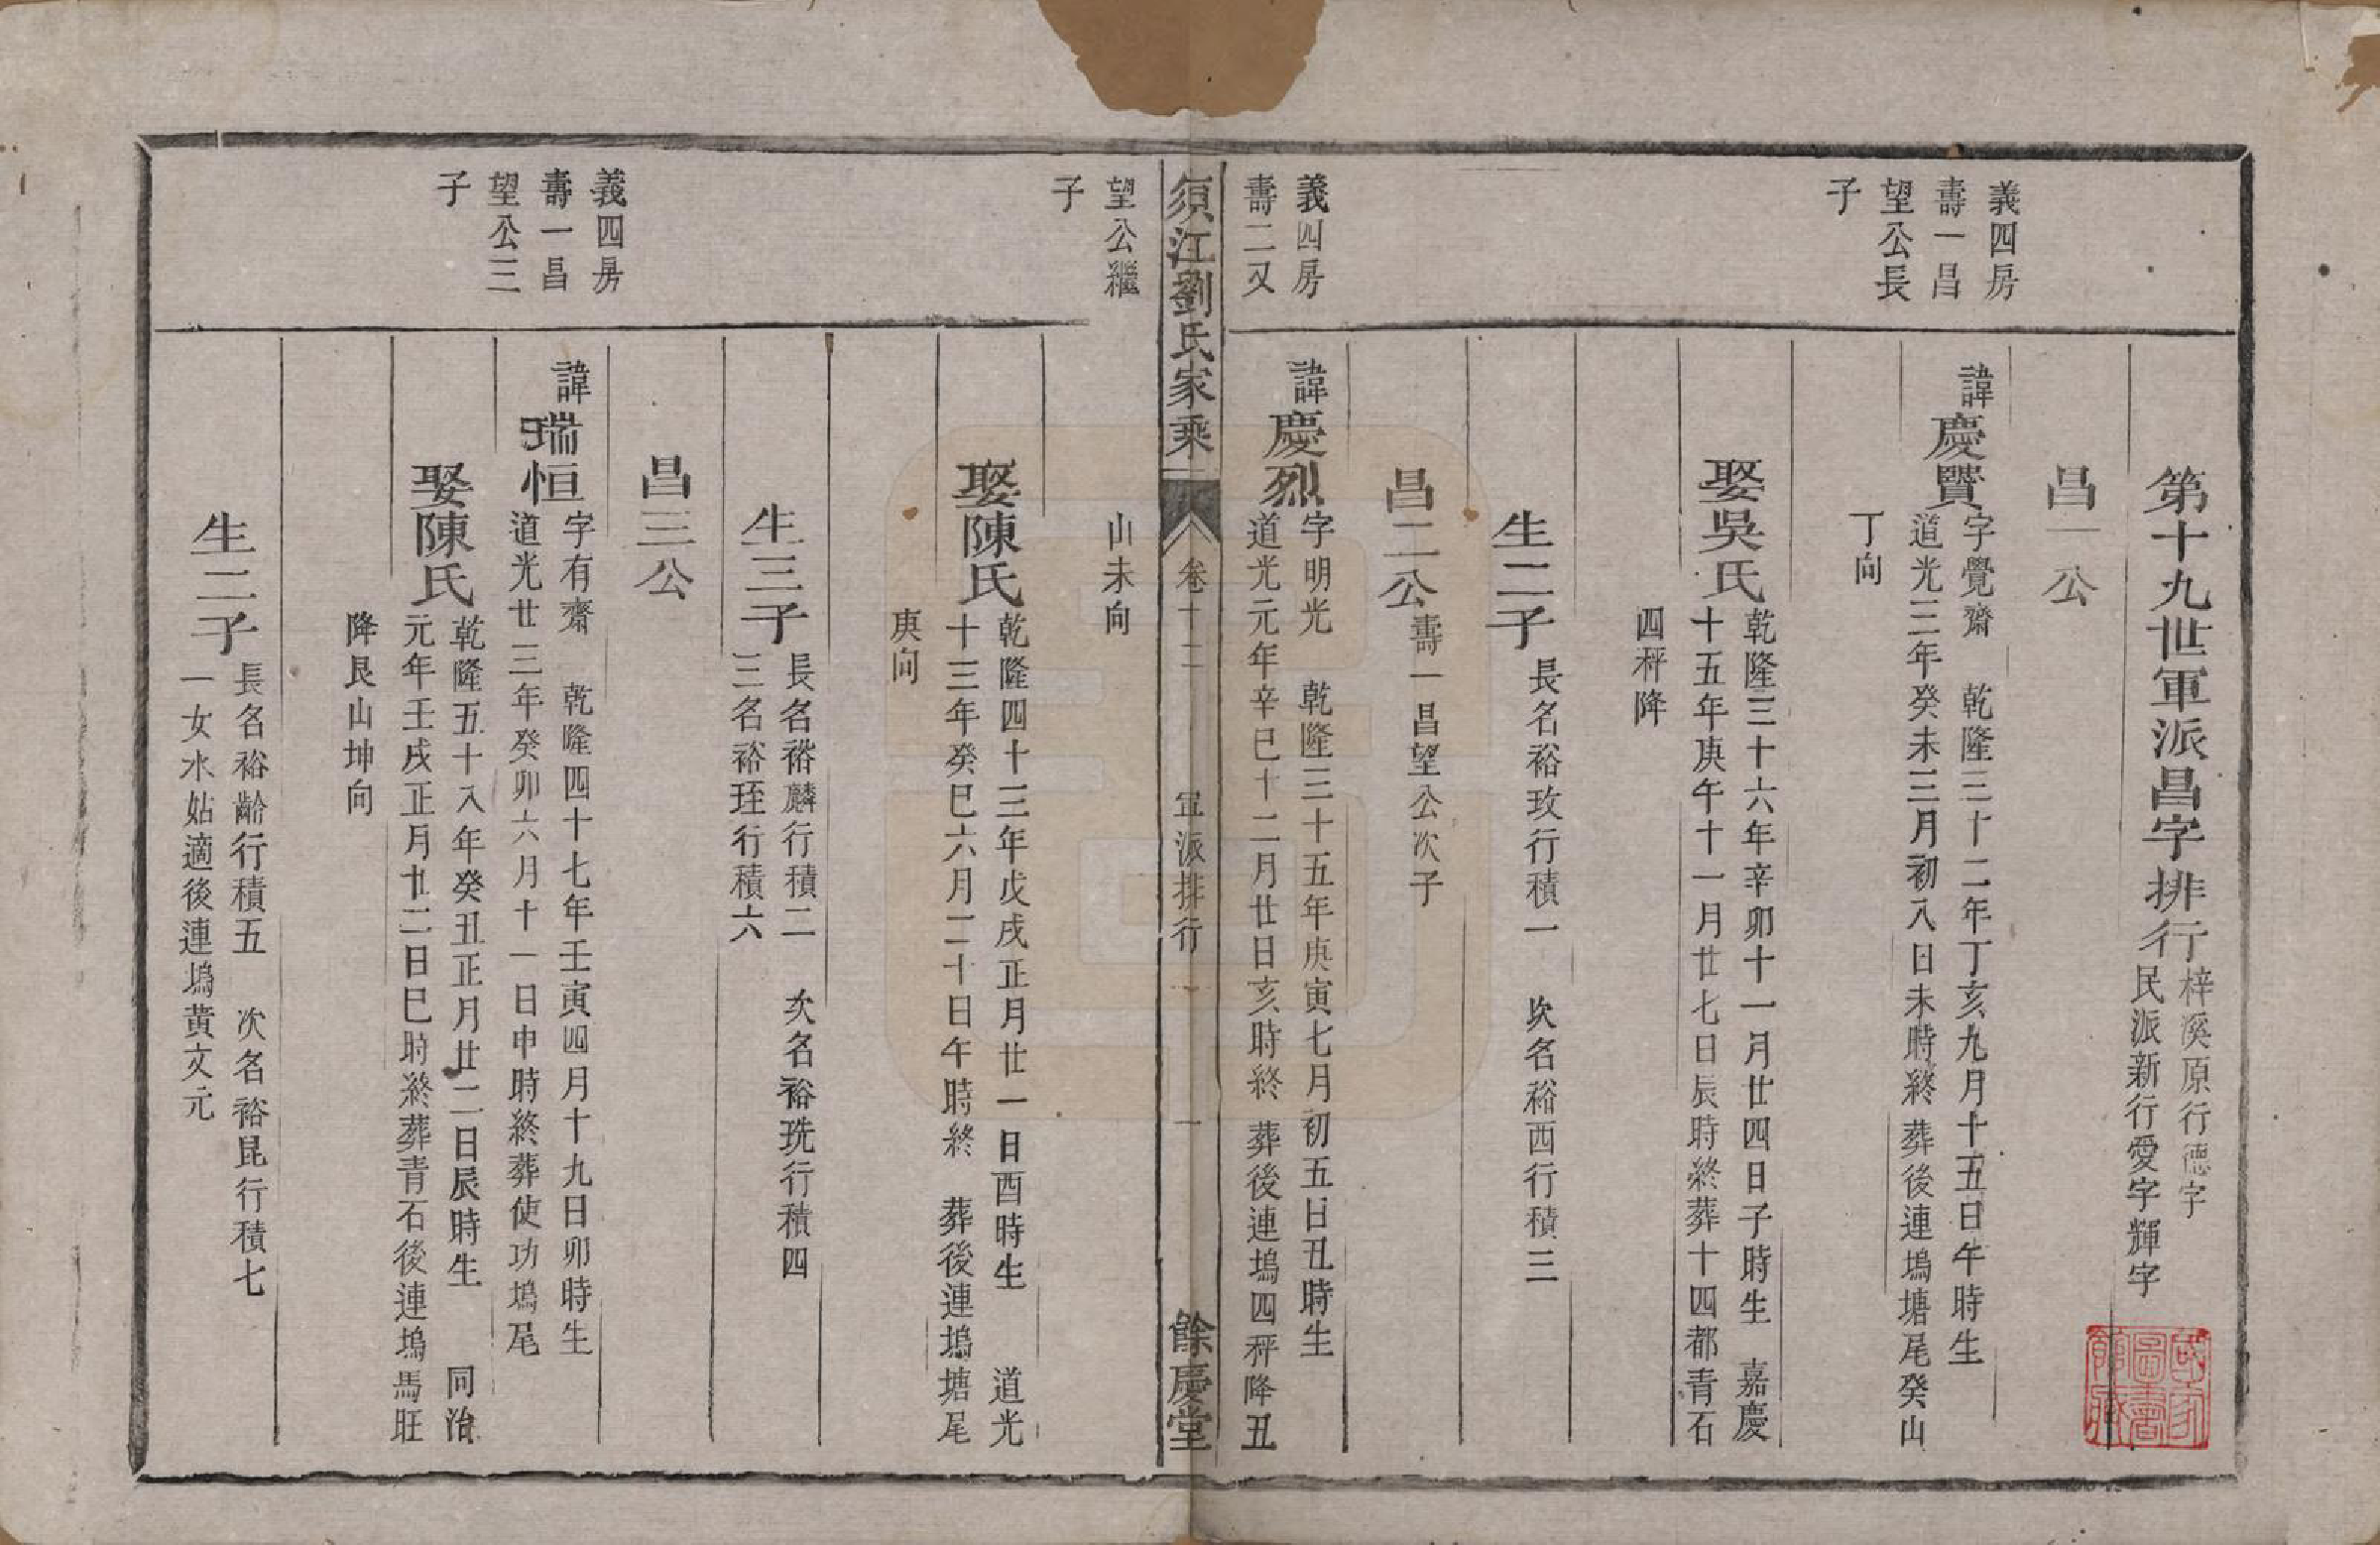 第十九世軍派昌字排行
梓溪原行德字
民派新行愛字輝字
昌一公
義四房
壽一昌
望公長
子
諱慶贒
字覺齋 乾隆三十二年丁亥九月十五日午時生
道光三年癸未三月初八日未時終 葬後連塢塘尾癸山
丁向
娶吳氏
乾隆三十六年辛卯十一月廿四日子時生 嘉慶
十五年庚午十一月廿七日辰時終葬十四都青石
四秤降
生二子
長名裕玫行積一 次名裕西行積三
昌二公
壽一昌望公次子
義四房
壽二又
諱慶烈
字明光 乾隆三十五年庚寅七月初五日丑時生
道光元年辛巳十二月廿日亥時終 葬後連塢四秤降丑
須江劉氏家乘
卷十二
軍派排行
一
餘慶堂
望公繼
子
山未向
娶陳氏
乾隆四十三年戊戌正月廿一日酉時生 道光
十三年癸巳六月二十日午時終 葬後連塢塘尾
庚向
生三子
長名裕麟行積二 次名裕珗行積四
三名裕珄行積六
昌三公
義四房
壽一昌
望公三
子
諱瑞恒
字有齋 乾隆四十七年壬寅四月十九日卯時生
道光廿三年癸卯六月十一日申時終葬使功塢尾
娶陳氏
乾隆五十八年癸丑正月廿二日辰時生 同治
元年壬戌正月廿二日巳時終葬青石後連塢馬旺
降艮山坤向
生二子
長名裕齡行積五 次名裕昆行積七
一女水姑適後連塢黃文元
國家圖書館藏